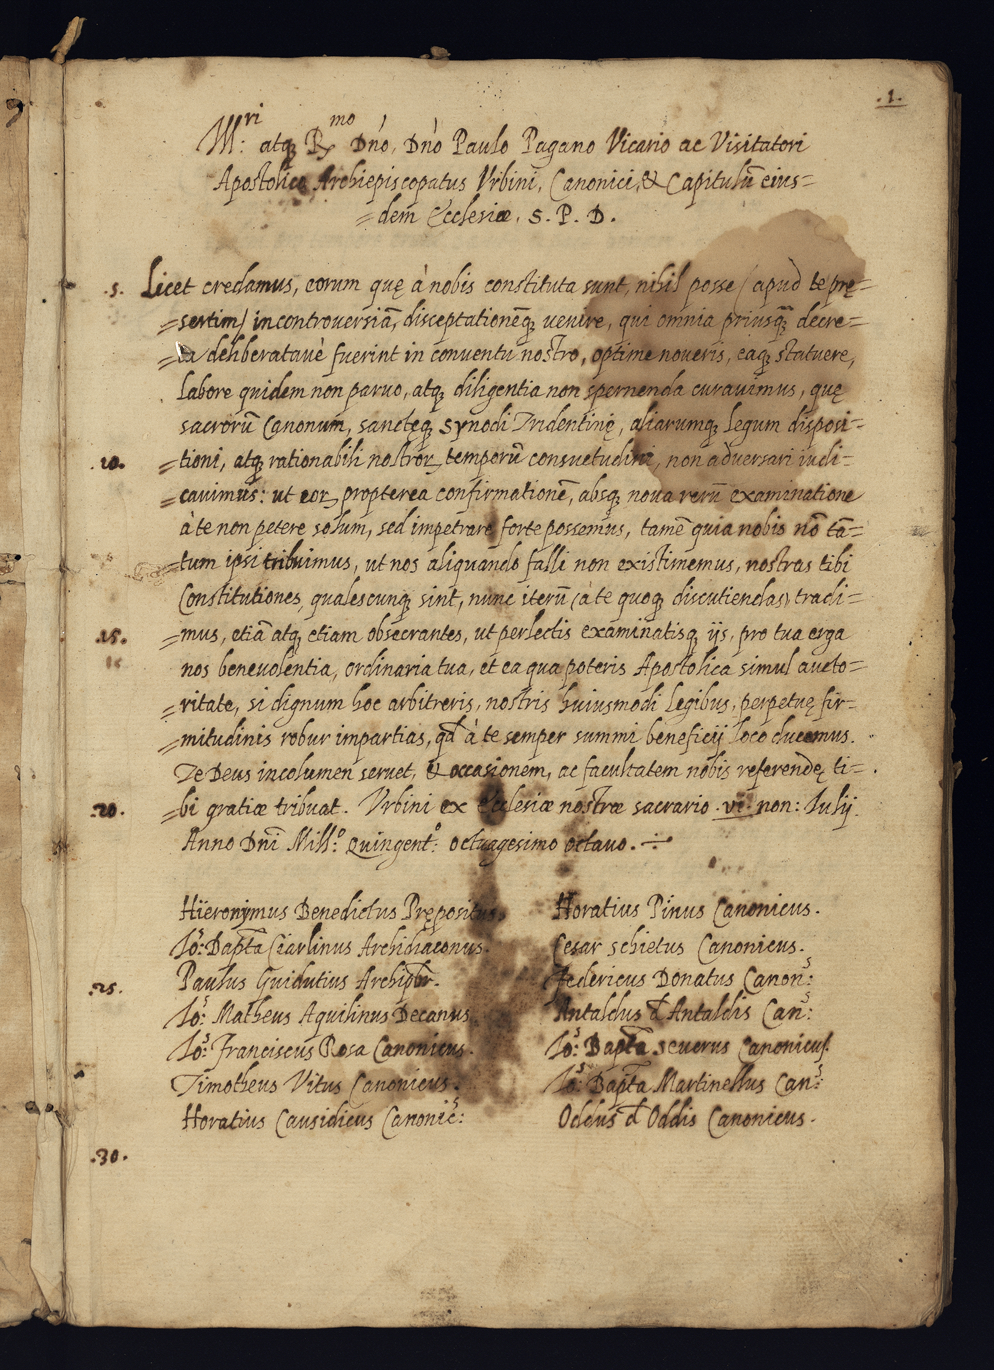 .1.
Ill:ri atq; R.mo Dño, Dño Paulo Pagano Vicario ac Visitatori
Apostolico Archiepiscopatus Vrbini, Canonici, & Capitulũ eius=
=dem Ecclesiæ. S. P. D.
.5. Licet credamus, eorum quę à nobis constituta sunt, nihil posse (apud te prę=
=sertim) in controversiã, disceptationẽq; venire, qui omnia priusq̃ decre=
=ta deliberataue fuerint in conventu nostro, optime noveris, eaq; statuere,
labore quidem non parvo, atq; diligentia non spernenda curavimus, quę
sacrorũ Canonum, sanctęq; Synodi Tridentinę, aliarumq; legum disposi=
.10. =tioni, atq; rationabili nostroꝝ temporũ consuetudini, non adversari iudi=
=cavimus: ut eoꝝ propterea confirmationẽ, absq; nova rerũ examinatione
à te non petere solum, sed impetrare forte possemus, tamẽ quia nobis nõ tã=
=tum ipsi tribuimus, ut nos aliquando falli non existimemus, nostras tibi
Constitutiones, qualescunq; sint, nunc iterũ (à te quoq; discutiendas) tradi=
.15. =mus, etiã atq; etiam obsecrantes, ut perlectis examinatisq; ijs, pro tua erga
nos benevolentia, ordinaria tua, et ea qua poteris Apostolica simul aucto=
=ritate, si dignum hoc arbitreris, nostris huiusmodi legibus, perpetuę fir=
=mitudinis robur impartias, qđ à te semper summi beneficij loco ducemus.
Te Deus incolumen servet, & occasionem, ac facultatem nobis referendę ti=
.20. =bi gratiæ tribuat. Vrbini ex Ecclesiæ nostræ sacrario .vi. non: Iulij.
Anno Dñi Mill:o Quingent:o octuagesimo octavo. ÷
Hieronymus Benedictus Prępositus. Horatius Pinus Canonicus.
Io:s Bapta Ciarlinus Archidiaconus. Cesar schietus Canonicus.
.25. Paulus Guidutius Archipbr. Federicus Donatus Canon:s
Io:s Matheus Aquilinus Decanus. Antaldus đ Antaldis Can:s
Io:s Franciscus Rosa Canonicus. Io:s Bapta severus Canonicus.
Timotheus Vitus Canonicus. Io:s Bapta Martinellus Can:s
Horatius Causidicus Canonic:s Oddus đ Oddis Canonicus.
.30.